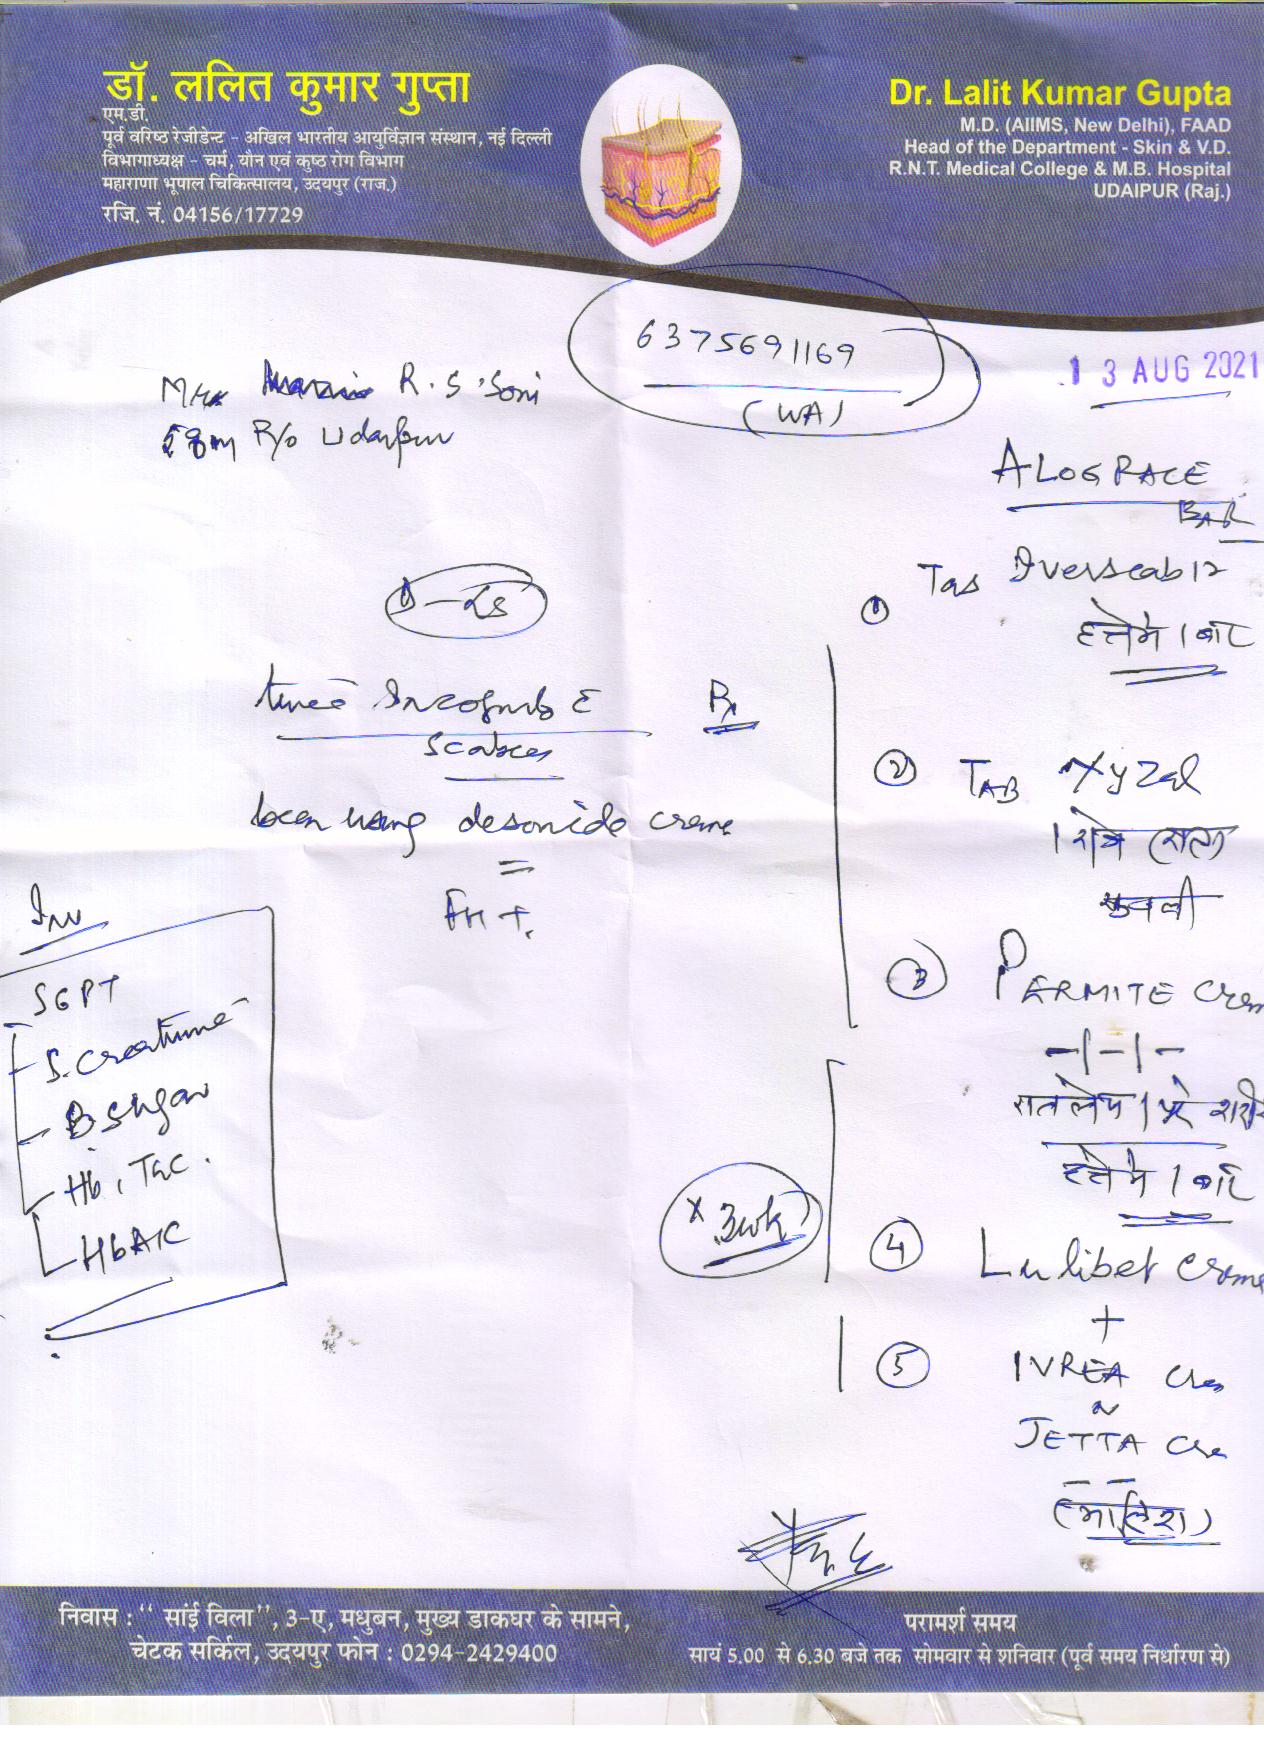 डॉ. ललित कुमार गुप्ता
एम.डी.
पूर्व वरिष्ठ रेजीडेन्ट - अखिल भारतीय आयुर्विज्ञान संस्थान, नई दिल्ली
विभागाध्यक्ष - चर्म, यौन एवं कुष्ठ रोग विभाग
महाराणा भूपाल चिकित्सालय, उदयपुर (राज.)
रजि. नं. 04156/17729
Dr. Lalit Kumar Gupta
M.D. (AIIMS, New Delhi), FAAD
Head of the Department - Skin & V.D.
R.N.T. Medical College & M.B. Hospital
UDAIPUR (Raj.)
6375691169
(WA)
13 AUG 2021
R.S. Soni
R/o Udaipur
tinea Incognito c
Scabies
been using desonide creme
FH +.
Inv
SGPT
S. Creatinine
B. Sugar
Hb, TLC.
HbA1C
Rx
ALOGRACE
BAR
① Tab Iverscab 12
हफ्ते में 1 बार
② TAB Xyzal
1 रोज (रात)
खुजली
③ PERMITE Crem
-|-|-
रात लेप / पूरे शरीर
हफ्ते में 1 बार
x 3wk
④ Lulibet Creme
+
⑤ IVREA Cre
JETTA Cre
(मालिश)
निवास : “ सांई विला”, 3-ए, मधुबन, मुख्य डाकघर के सामने,
चेटक सर्किल, उदयपुर फोन : 0294-2429400
परामर्श समय
सायं 5.00 से 6.30 बजे तक सोमवार से शनिवार (पूर्व समय निर्धारण से)